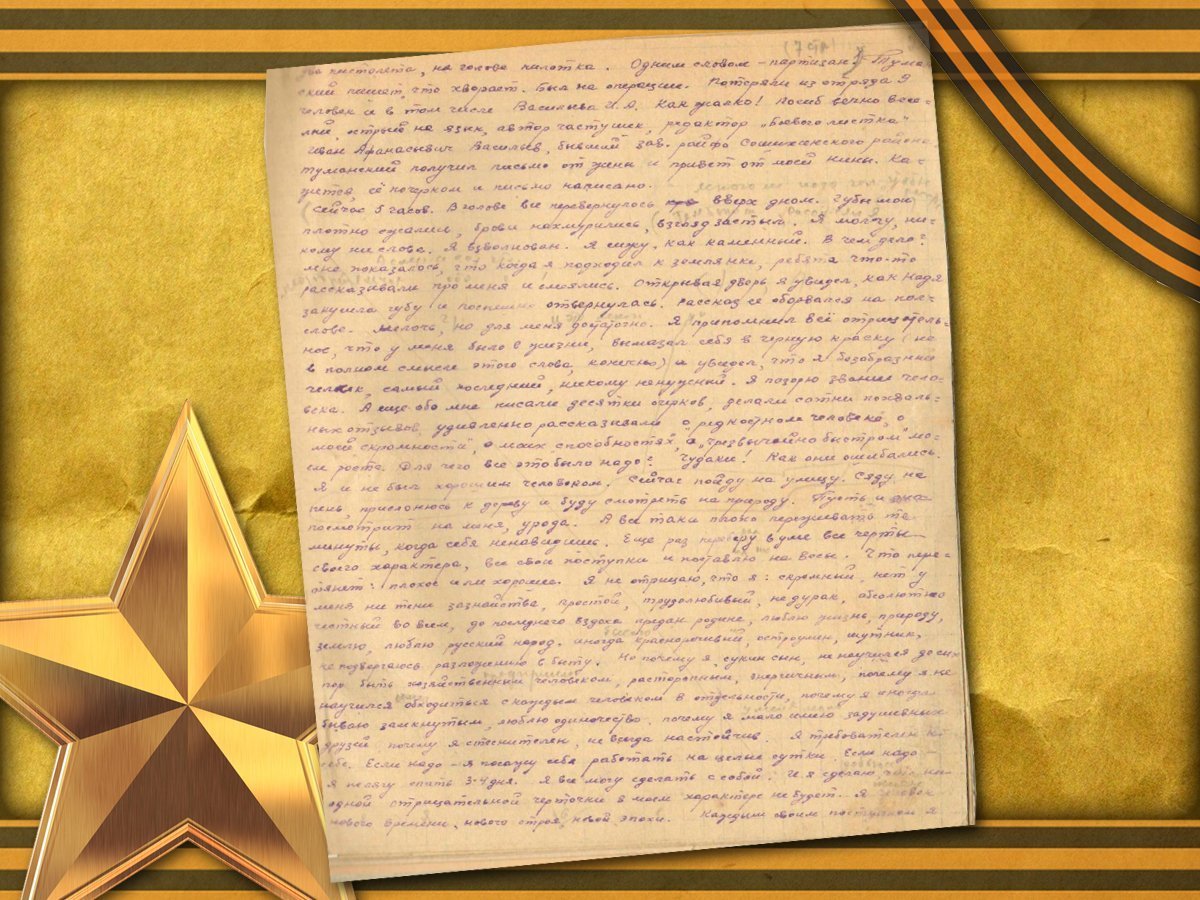 два пистолета, на голове пилотка. Одним словом – партизан! Тума-
ский пишет, что хворает. Был на операции. Потеряли из отряда 9
человек и в том числе Васильева И.А. Как жалко! Погиб вечно весе-
лый, острый на язык, автор частушек, редактор „Боевого листка"
Иван Афанасьевич Васильев, бывший зав. райфо Сошихинского района.
Туманский получил письмо от жены и привет от моей Нины. Ка-
жется, её почерком и письмо написано.
Сейчас 5 часов. В голове все перевернулось вверх дном. Губы мои
плотно сжались, брови нахмурились, взгляд застыл. Я молчу, ни-
кому ни слова. Я взволнован. Я сижу, как каменный. В чем дело?
Мне показалось, что когда я подходил к землянке, ребята что-то
рассказывали про меня и смеялись. Открывая дверь, я увидел, как Надя
закусила губу и поспешно отвернулась. Рассказ её оборвался на полу-
слове. Мелочь, но для меня достаточно. Я припомнил всё отрицатель-
ное, что у меня было в жизни, вымазал себя в черную краску (не
в полном смысле этого слова, конечно) и увидел, что я безобразный
человек, самый последний, никому ненужный. Я позорю звание чело-
века. А еще обо мне писали десятки очерков, делали сотни похваль-
ных отзывов, удивленно рассказывали о „редкостном человеке", о
„моей скромности", о моих способностях, о „чрезвычайно быстром" мо-
ем росте. Для чего все это было надо? Чудаки! Как они ошибались.
Я и не был хорошим человеком. Сейчас пойду на улицу. Сяду на
пень, прислонюсь к дереву и буду смотреть на природу. Пусть и она
посмотрит на меня, урода. А все таки плохо переживать те
минуты, когда себя ненавидишь. Еще раз переберу в уме все черты
своего характера, все свои поступки и поставлю на весы. Что пере-
тянет: плохое или хорошее. Я не отрицаю, что я: скромный, нет у
меня ни тени зазнайства, простой, трудолюбивый, не дурак, абсолютно
честный во всем, до последнего вздоха предан родине, люблю жизнь, природу,
землю, люблю русский народ. иногда красноречивый, остроумен, шутник,
не подвергаюсь разложению в быту. Но почему я, сукин сын, не научился до сих
пор быть хозяйственным человеком, расторопным, энергичным, почему я не
научился обходиться с каждым человеком в отдельности, почему я иногда
бываю замкнутым, люблю одиночество, почему я мало имею задушевных
друзей, почему я стеснителен, не всегда настойчив. Я требователен к
себе. Если надо – я посажу себя работать на целые сутки. Если надо –
я лягу спать 3-4 дня. Я все могу сделать с собой. И я сделаю что ни
одной отрицательной черточки в моем характере не будет. Я человек
нового времени, нового строя, новой эпохи. Каждым своим поступком я